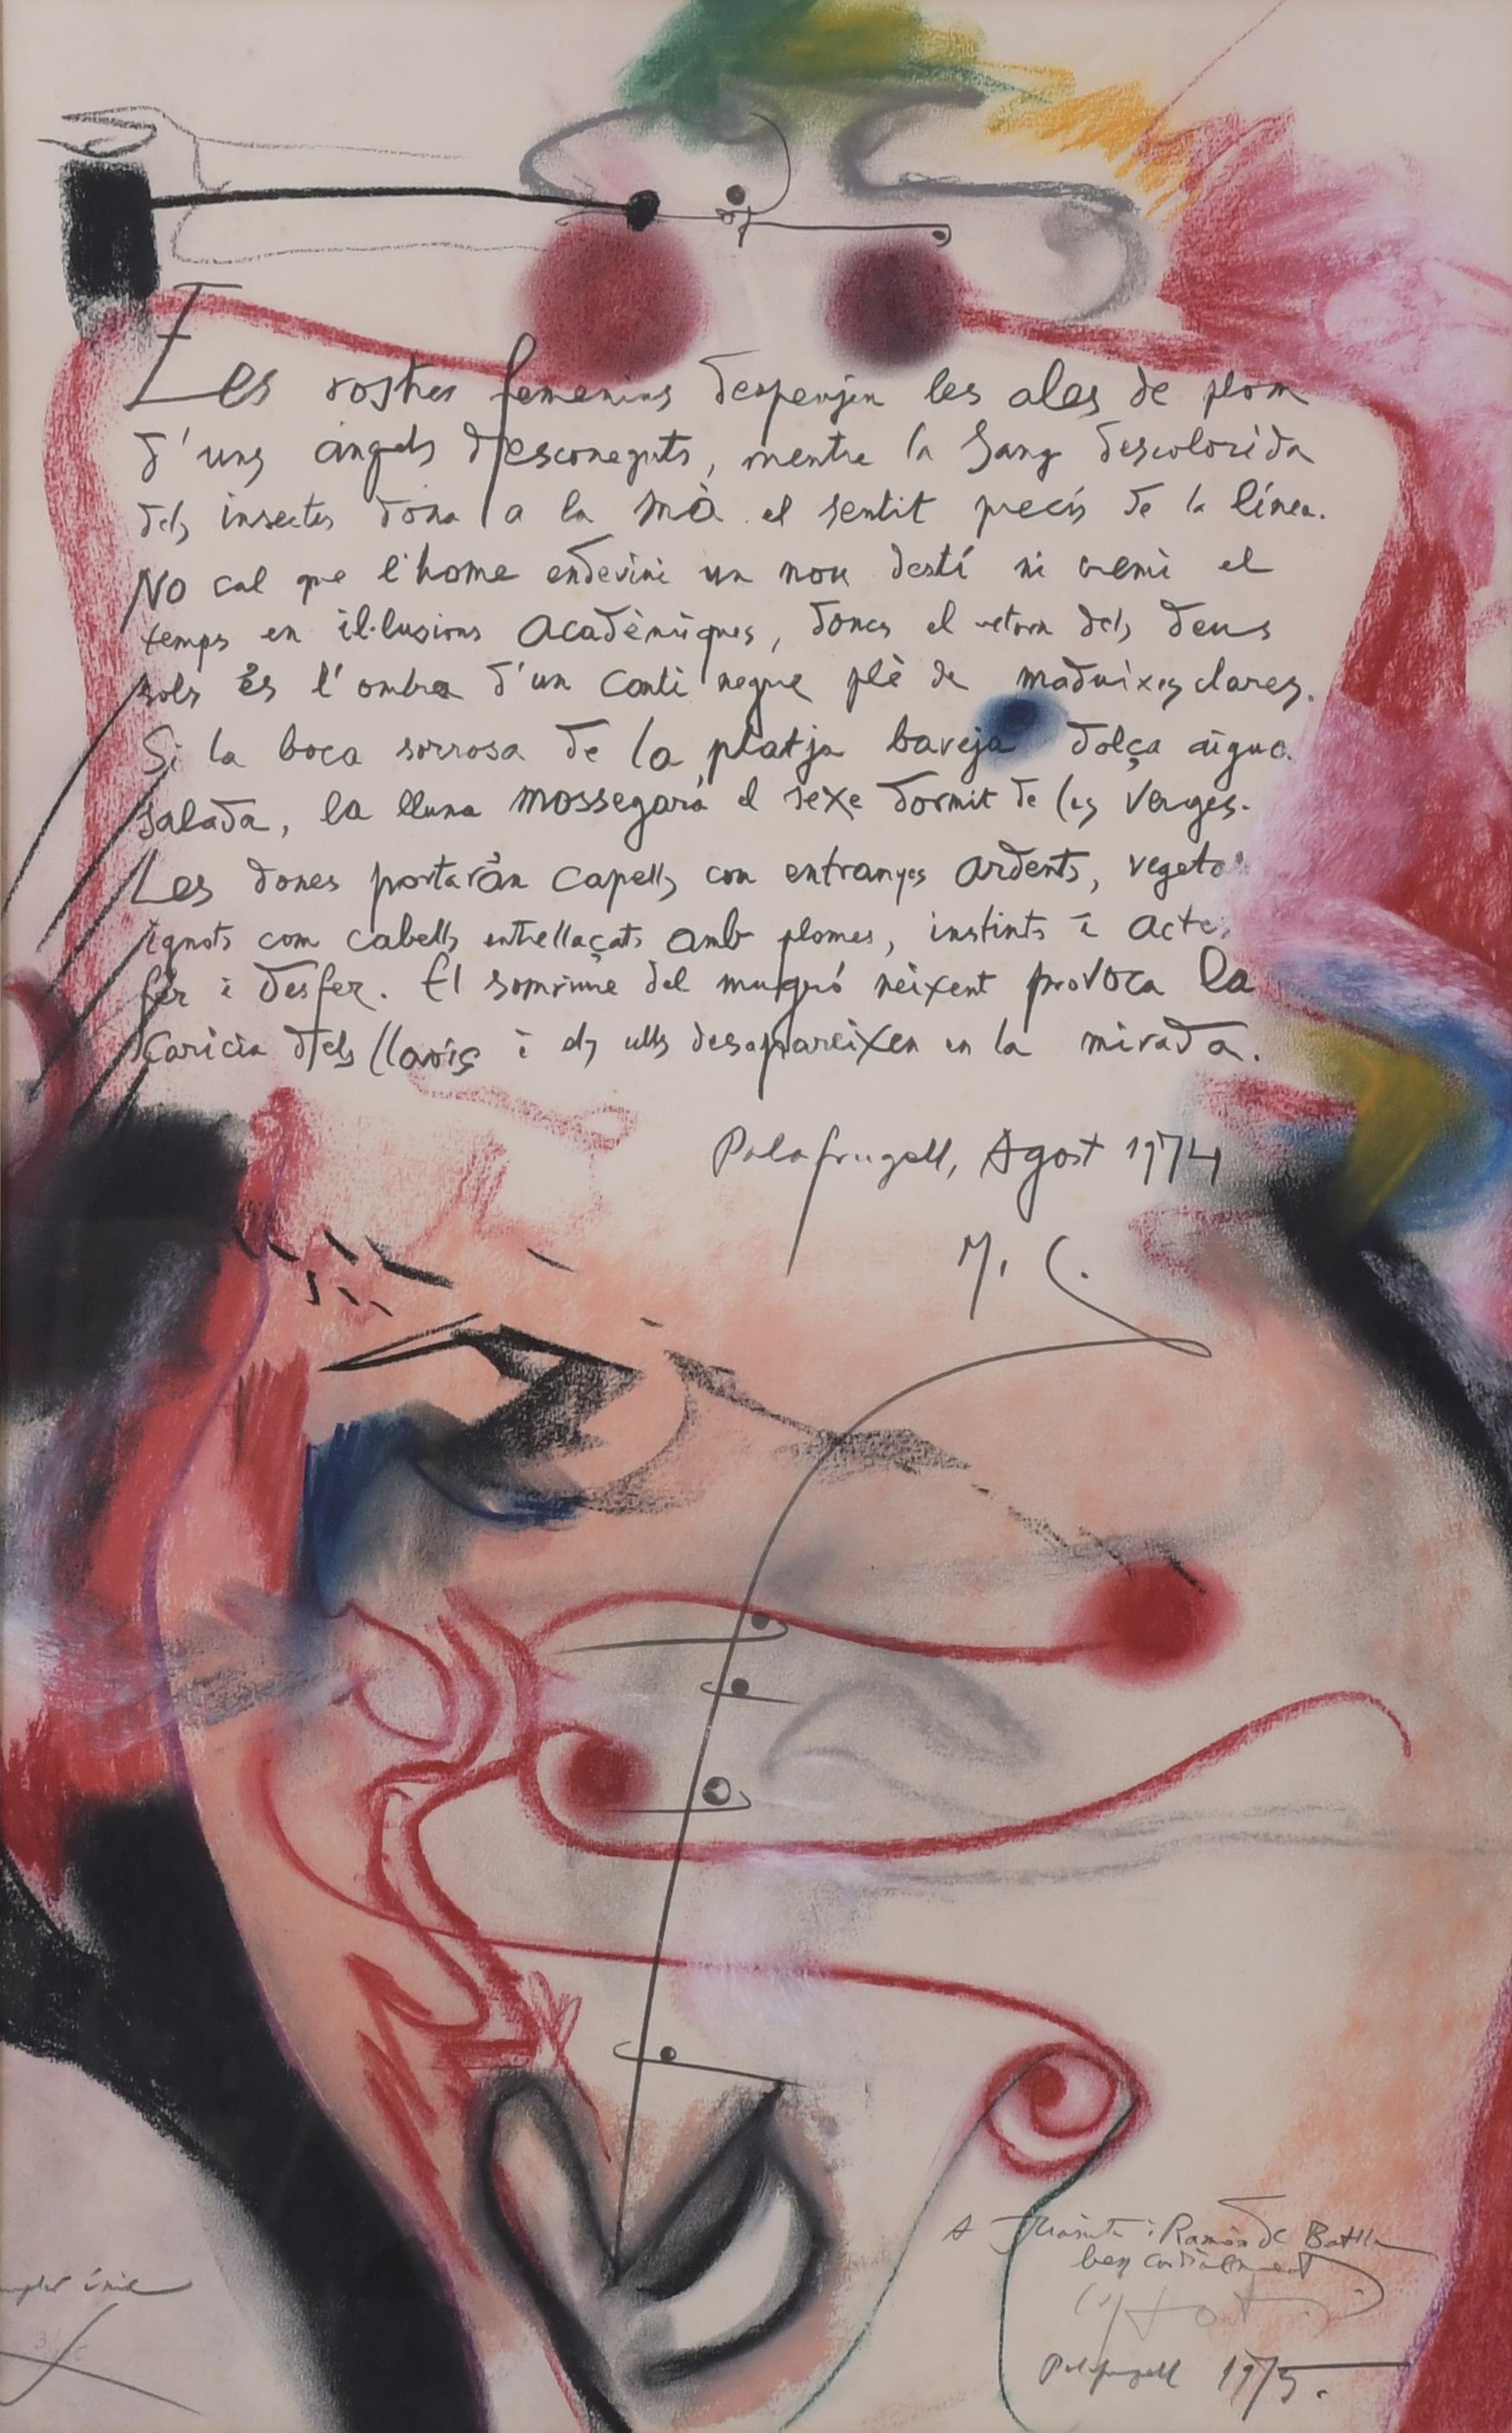 Les rostres femenins despenjen les ales de plom
d'uns àngels desconeguts, mentre la sang descolorida
dels insectes dona a la mà el sentit precís de la línea.
No cal que l'home endevini un nou destí ni cremi el
temps en il·lusions acadèmiques, doncs el retorn dels deus
sols és l'ombra d'un cantí negre plè de maduixes clares.
Si la boca sorrosa de la platja baveja dolça aigua
salada, la lluna mossegarà el sexe dormit de les verges.
Les dones portaràn capells com entranyes ardents,
ignots com cabells entrellaçats amb plomes, instints i actes
fer i desfer. El somriure del mugró neixent provoca la
caricia dels llavis i els ulls desapareixen en la mirada.
Palafrugell, Agost 1974
M. C.
A i Ramón de Batlle
ben cordialment
Palafrugell 1975.
únic